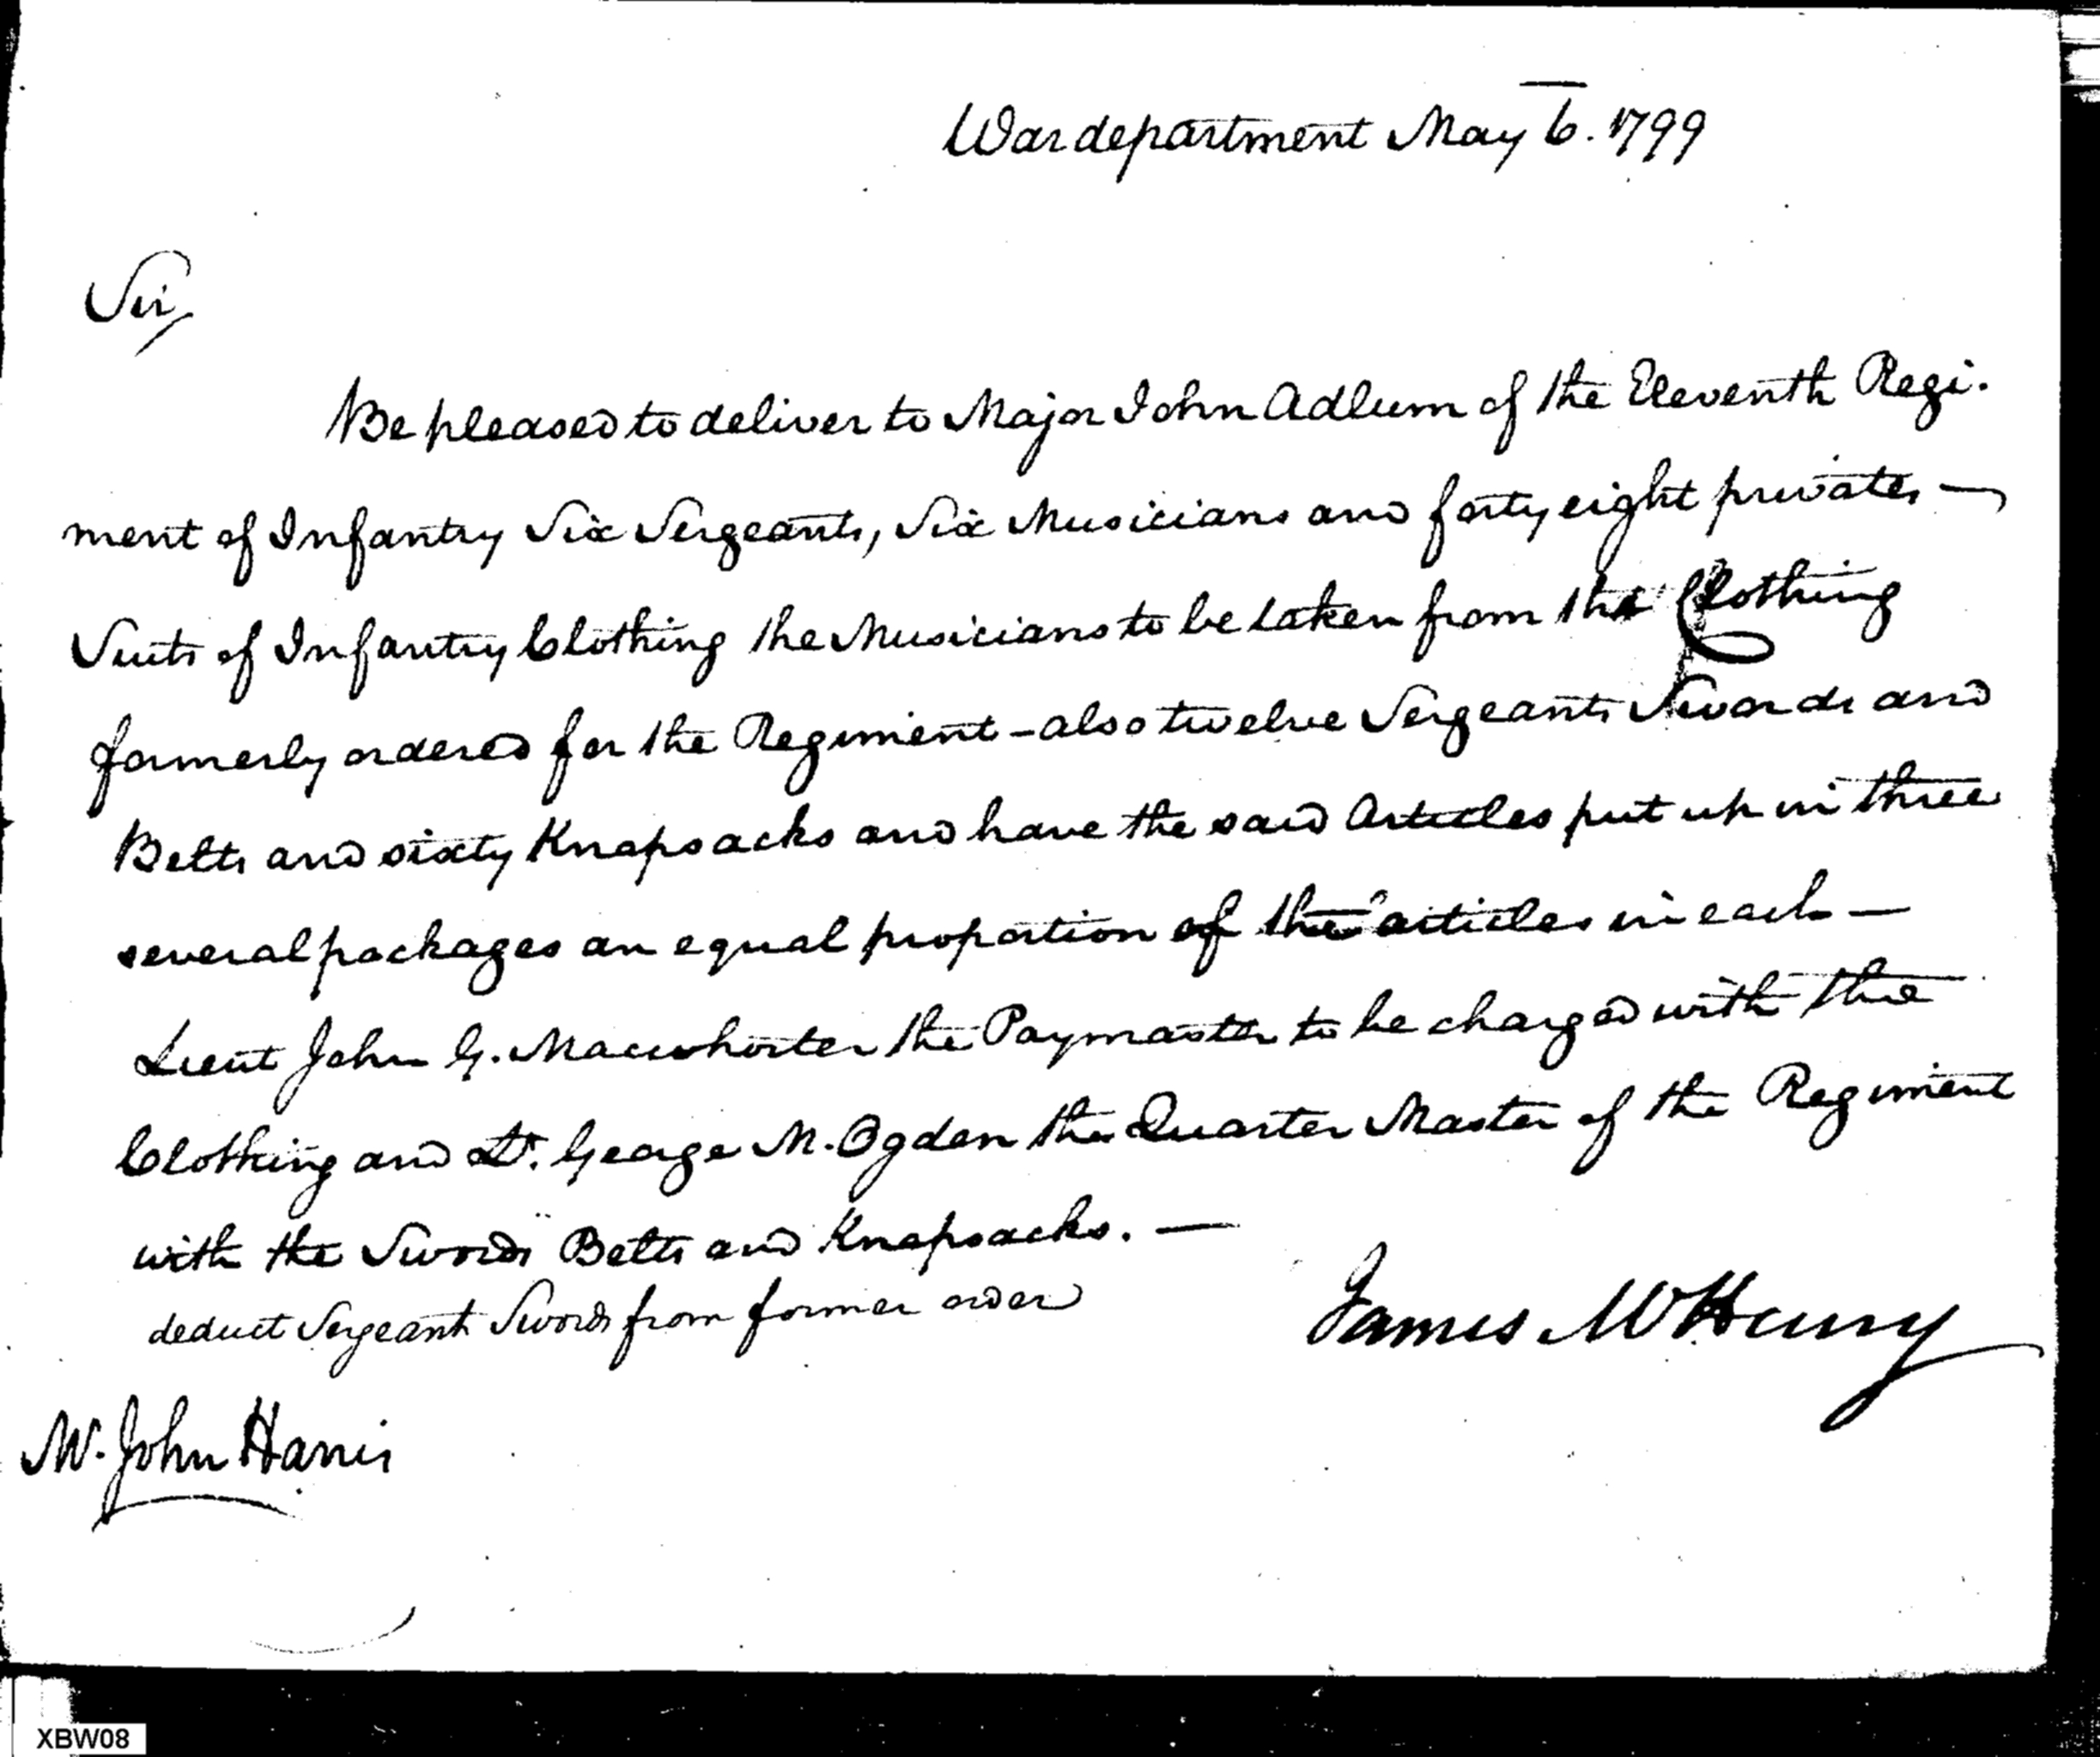 War department May 6. 1799
Sir,
Be pleased to deliver to Major John Adlum of the Eleventh Regi-
ment of Infantry Six Sergeants, Six Musicians and forty eight privates —
Suits of Infantry Clothing the Musicians to be taken from the Clothing
formerly ordered for the Regiment - also twelve Sergeants Swords and
Belts and sixty Knapsacks and have the said Articles put up in three
several packages an equal proportion of the articles in each —
Lieut John G. Macwhorter the Paymaster to be charged with the
Clothing and Lt. George M. Ogden the Quarter Master of the Regiment
with the Swords Belts and Knapsacks. —
deduct Sergeants Swords from former order
James McHenry
Mr. John Harris
XBW08